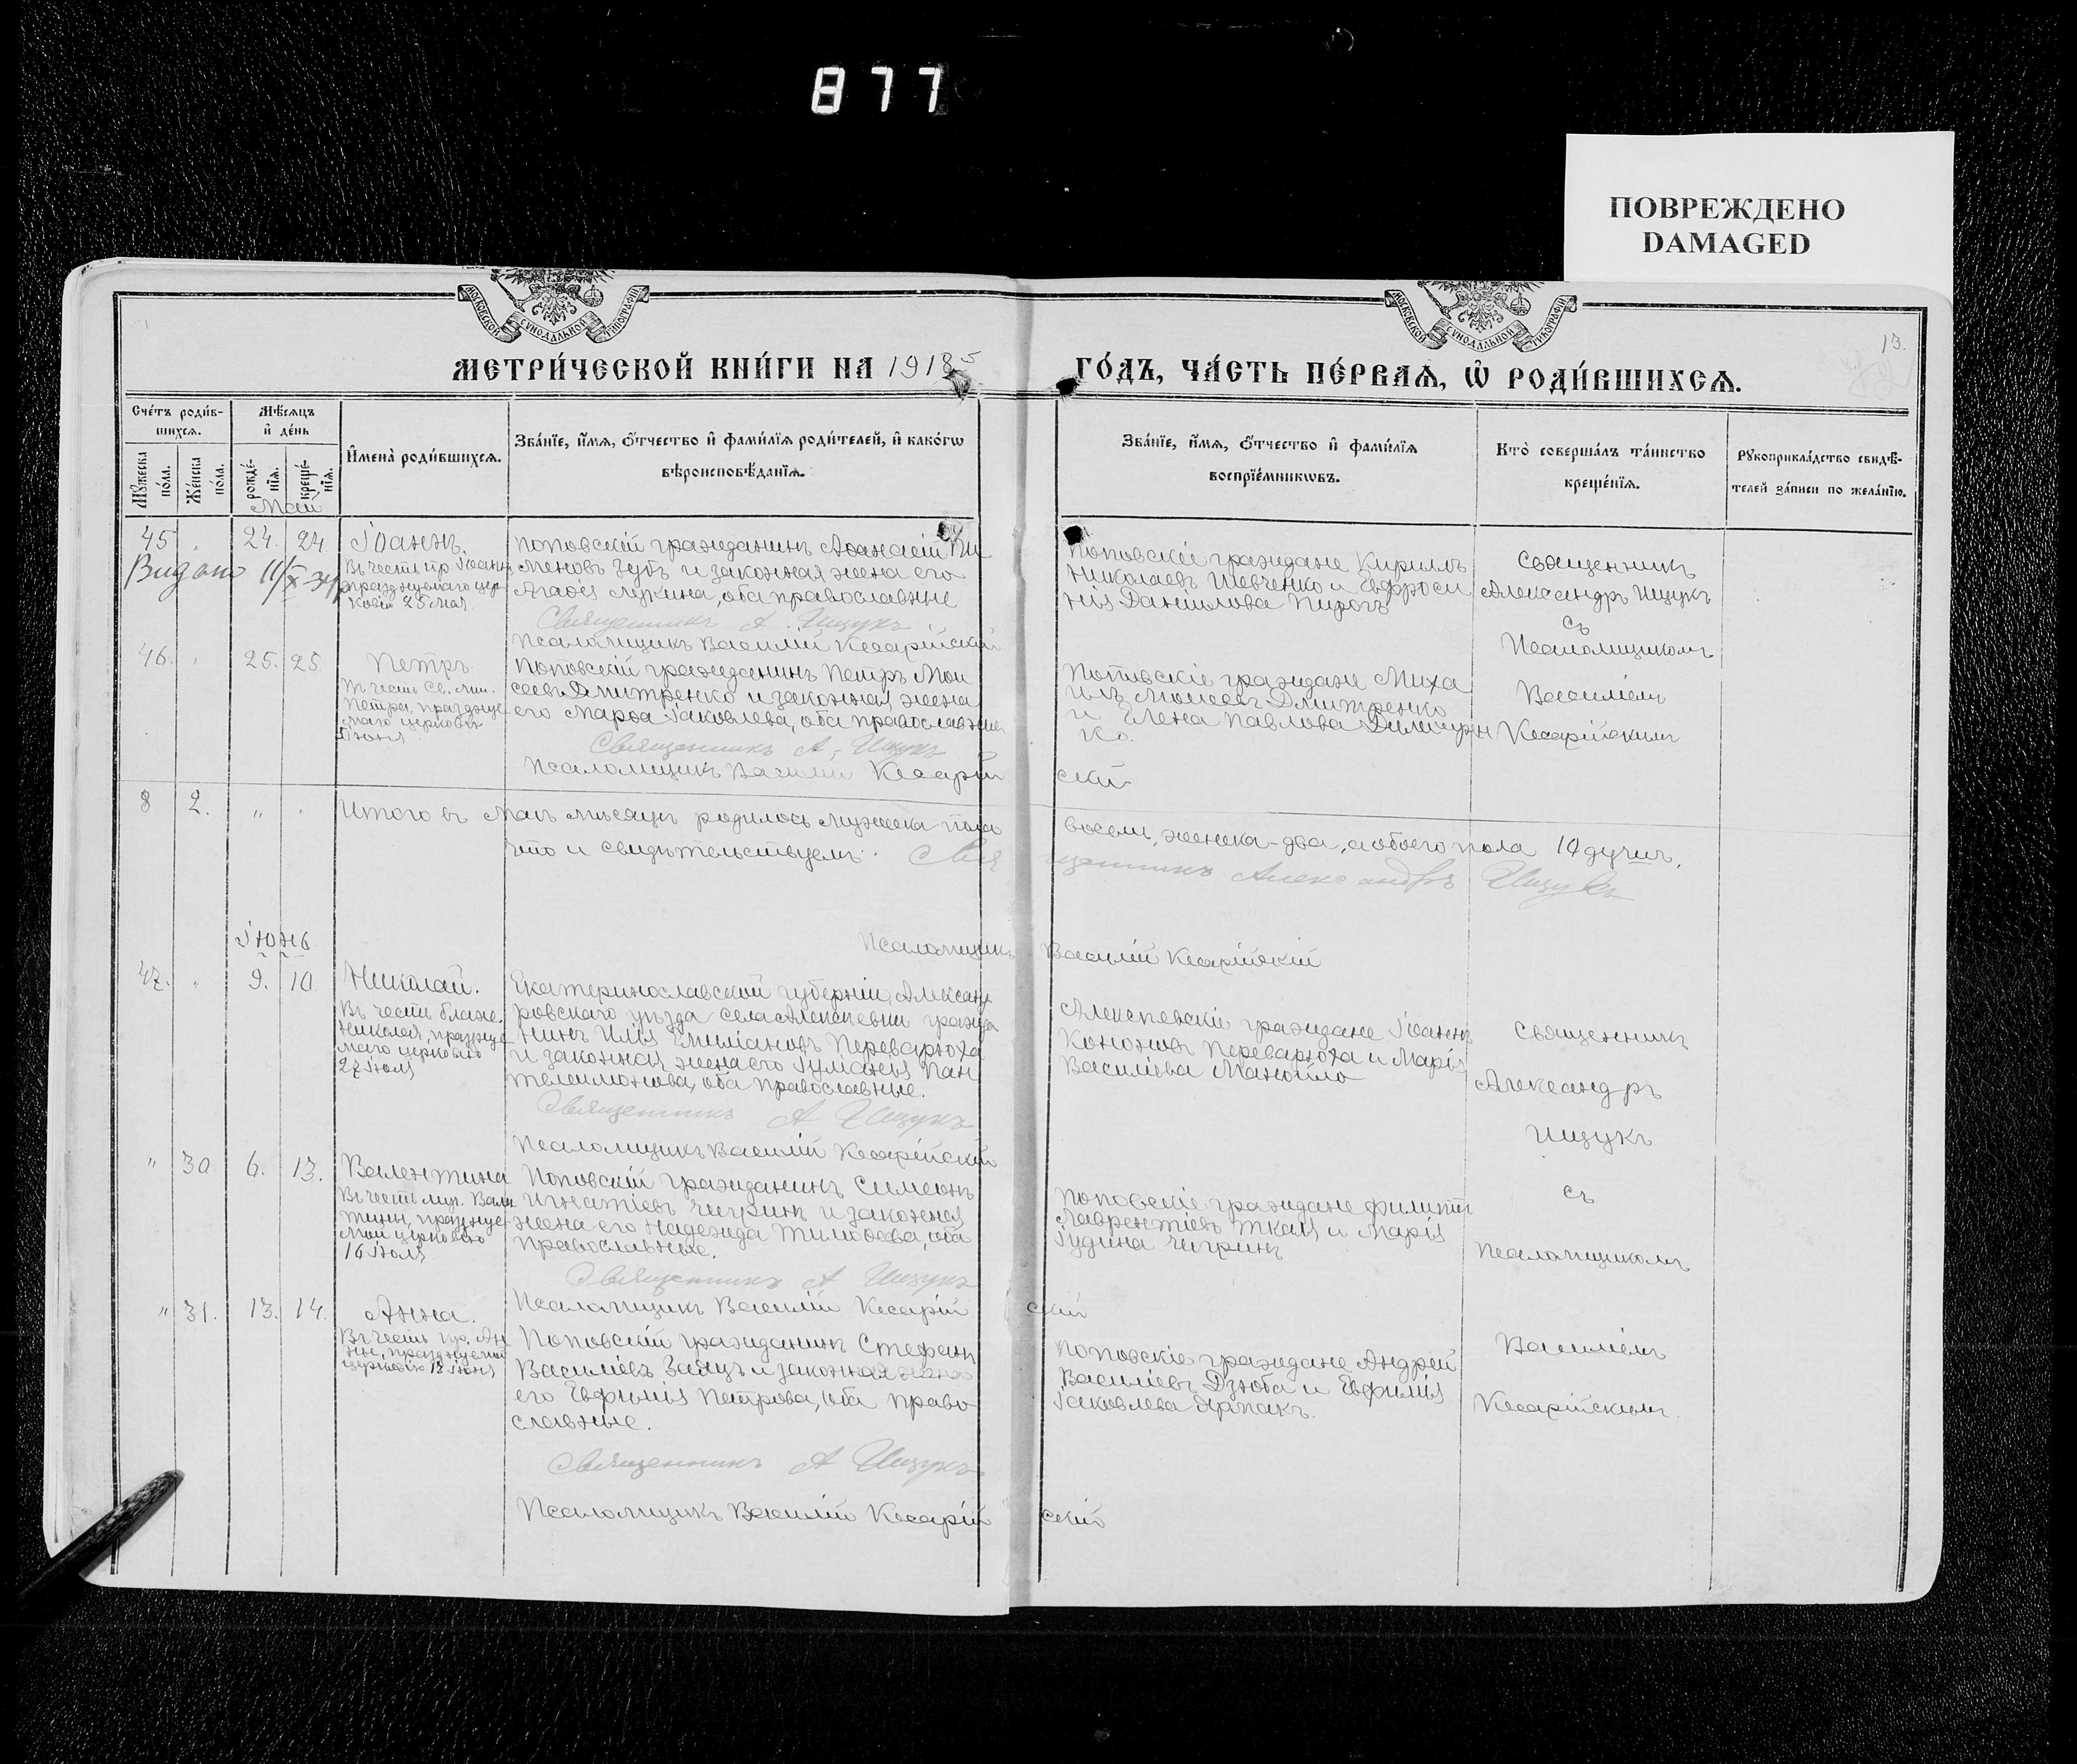 877
ПОВРЕЖДЕНО
DAMAGED
МОСКОВСКОЙ СѴНОДАЛЬНОЙ ТИПОГРАФІИ
МОСКОВСКОЙ СѴНОДАЛЬНОЙ ТИПОГРАФІИ
13.
МЕТРИ́ЧЕСКОЙ КНИ́ГИ НА 1918
ГО́ДЪ, ЧА́СТЬ ПЕ́РВАѦ, Ѡ҆ РОДИ́ВШИХСѦ.
Сче́тъ роди́в-
шихсѧ.
Мꙋ́жеска
по́ла.
Же́нска
по́ла.
Мѣ́сѧцъ
и҆ де́нь
рожде́-
нїѧ.
креще́-
нїѧ.
И҆мена̀ роди́вшихсѧ.
Зва́нїе, и҆́мѧ, ѻ҆́тчество и҆ фами́лїѧ роди́телей, и҆ како́гѡ
вѣроисповѣ́данїѧ.
Зва́нїе, и҆́мѧ, ѻ҆́тчество и҆ фами́лїѧ
воспрїе́мникѡвъ.
Кто̀ соверша́лъ та́инство
креще́нїѧ.
Рꙋкоприкла́дство свидѣ́-
телей за́писи по жела́нїю.
Май
45 " 24. 24
Іоаннъ.
Въ честь пр. Іоанна
празднуемаго цер-
ковію 25 Мая
Видано 11/X
Поповскій гражданинъ Аѳанасій Пи
меновъ Зубъ и законная жена его
Агаѳія Лукина, оба православные
Священникъ А. Ищукъ
Псаломщикъ Василій Кесарійскій
Поповскіе граждане Кириллъ
Николаевъ Шевченко и Евфроси
нія Даніилова Пирогъ
Священникъ
Александръ Ищукъ
съ
Псаломщикомъ
Василіемъ
Кесарійскимъ
46. " 25. 25
Петръ
Въ честь Св. 
Петра, празднуе
маго церковію
Іюня
Поповскій гражданинъ Петръ Мои
сеевъ Дмитренко и законная жена
его Марѳа Іаковлева, оба православные
Священникъ А. Ищукъ
Псаломщикъ Василій Кесарій
скій
Поповскіе граждане Миха
илъ Моисеевъ Дмитренко
и Елена Павлова Димитрен
ко.
8 2. " "
Итого въ Маѣ мѣсяцѣ родилось мужеска пола
восемь, женска - два, а обоего пола 10 душъ,
что и свидѣтельствуемъ: Свя
щенникъ Александръ Ищукъ
Псаломщикъ Василій Кесарійскій
Іюнь
47. " 9. 10.
Николай.
Въ честь блаж.
Николая, празднуе
маго церковію
27 Іюля
Екатеринославской губерніи, Александ
ровскаго уѣзда села Алексѣевки гражда
нинъ Илія Емиліановъ Переварюха
и законная жена его Іуліанія Пан
телеимонова, оба православные.
Священникъ А Ищукъ
Псаломщикъ Василій Кесарійскій
Алексѣевскіе граждане Іоаннъ
Кононовъ Переварюха и Марія
Василіева Манойло
Священникъ
Александръ
Ищукъ
съ
Псаломщикомъ
Василіемъ
Кесарійскимъ.
" 30 6. 13.
Валентина
Въ честь муч. Вален
тины, празднуе-
мой церковію
16 Іюля
Поповскій гражданинъ Симеонъ
Игнатіевъ Чигринъ и законная
жена его Надежда Тимоѳеева, оба
православные.
Священникъ А Ищукъ
Псаломщикъ Василій Кесарій
скій
Поповскіе граждане Филиппъ
Лаврентіевъ Ткачъ и Марія
Іудина Чигринъ
" 31. 13. 14.
Анна.
Въ честь пр. Ан
ны, празднуемой
церковію 12 Іюня
Поповскій гражданинъ Стефанъ
Василіевъ Заяцъ и законная жена
его Евфимія Петрова, оба право
славные.
Священникъ А Ищукъ
Псаломщикъ Василій Кесарій
скій
Поповскіе граждане Андрей
Василіевъ Дзюба и Евфимія
Іаковлева Ярмакъ.